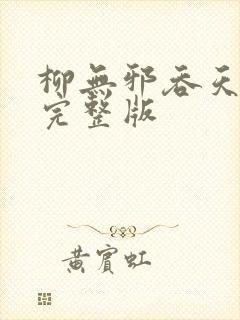 柳無邪吞天
完整版
黃賓虹